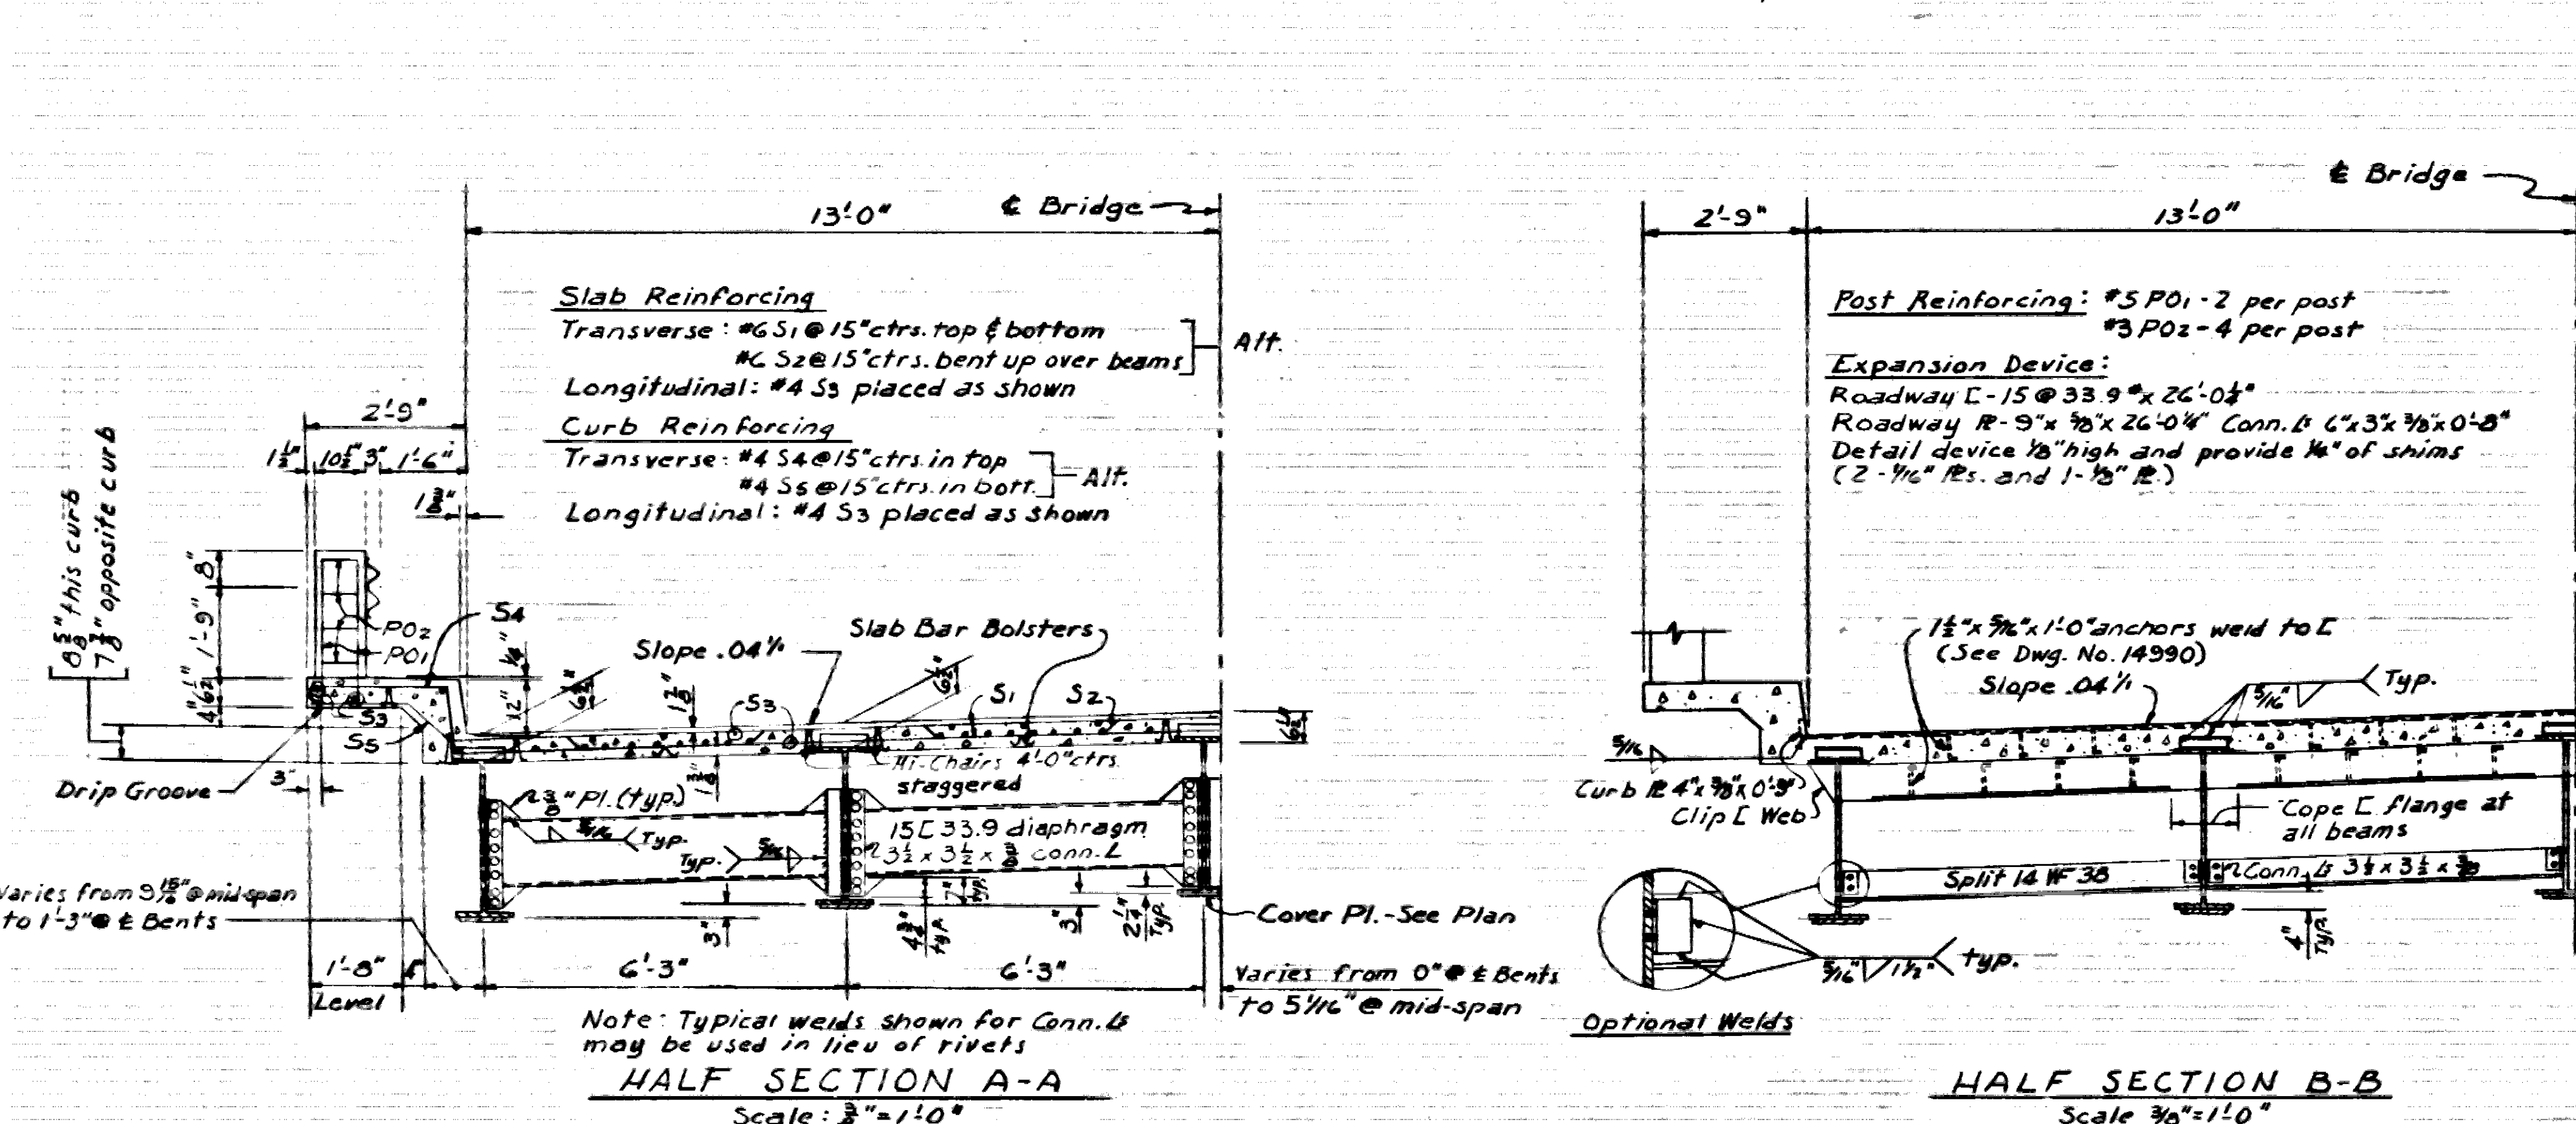 ℄ Bridge
13'-0"
Slab Reinforcing
Transverse: #6 S1 @ 15" ctrs. top & bottom
#6 S2 @ 15" ctrs. bent up over beams
Alt.
Longitudinal: #4 S3 placed as shown
Curb Reinforcing
Transverse: #4 S4 @ 15" ctrs. in top
#4 S5 @ 15" ctrs. in bott.
Alt.
Longitudinal: #4 S3 placed as shown
2'-9"
1½" 10½" 3" 1'-6"
8⅝" this curb
7⅞" opposite curb
8"
1'-9"
6½"
4"
PO2
PO1
S4
¼"
12"
Slope .04'/1
Slab Bar Bolsters
6½"
6½"
S1
S2
6½"
S3
S3
S5
1⅞"
Drip Groove
3"
Hi-Chairs 4'-0" ctrs.
staggered
⅜" Pl. (typ.)
5/16
Typ.
Typ.
5/16
15[ 33.9 diaphragm
3½ x 3½ x ⅜ conn. L
Varies from 9 15/16" @ mid-span
to 1'-3" @ ℄ Bents
3"
4¾" typ.
7" typ.
3"
2¼" Typ.
Cover Pl.-See Plan
1'-8"
Level
4"
6'-3"
6'-3"
Varies from 0" @ ℄ Bents
to 5 1/16" @ mid-span
Note: Typical welds shown for Conn. Ls
may be used in lieu of rivets
HALF SECTION A-A
Scale: ⅜"=1'-0"
℄ Bridge
2'-9"
13'-0"
Post Reinforcing: #5 PO1 - 2 per post
#3 PO2 - 4 per post
Expansion Device:
Roadway [-15 @ 33.9# x 26'-0¼"
Roadway ℞ - 9" x ⅝" x 26'-0¼" Conn. Ls 6" x 3" x ⅜" x 0'-8"
Detail device ⅛" high and provide ¼" of shims
(2 - 1/16" ℞s. and 1 - ⅛" ℞.)
1½" x 5/16" x 1'-0" anchors weld to [
(See Dwg. No. 14990)
Slope .04'/1
5/16"
Typ.
5/16
Curb ℞ 4" x ⅜" x 0'-9"
Clip [ Web
Cope [ flange at
all beams
Split 14 WF 38
Conn. Ls 3½ x 3½ x ⅜
4" Typ.
5/16" 1½" typ.
Optional Welds
HALF SECTION B-B
Scale ⅜"=1'-0"